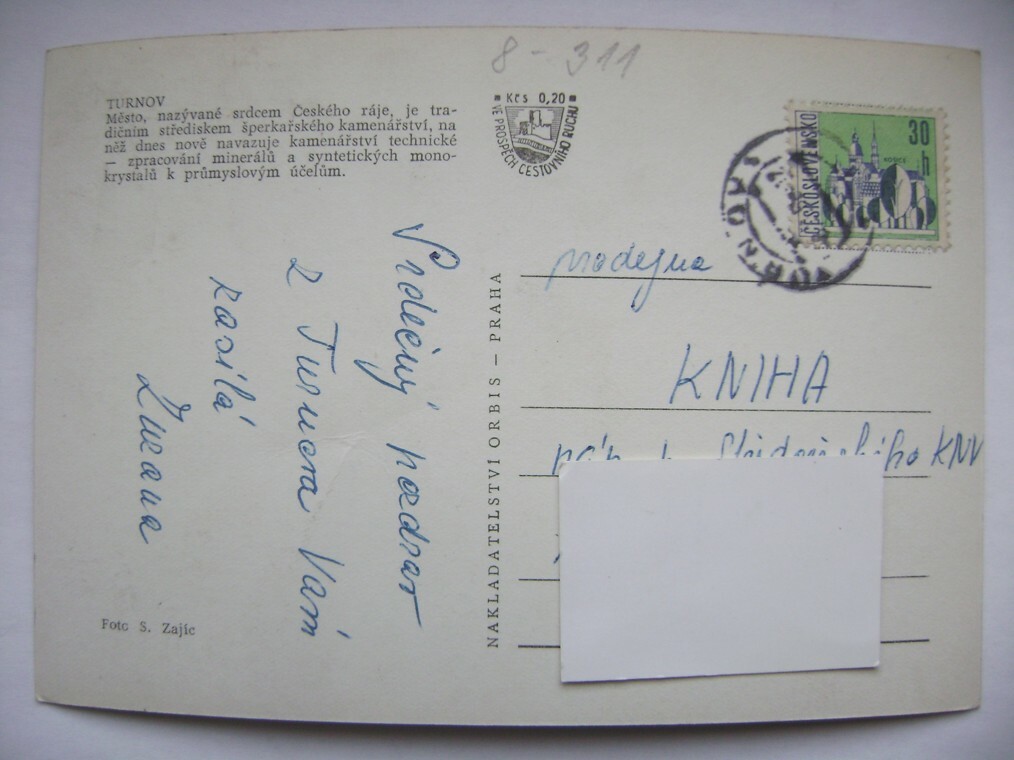 8-311
TURNOV
Město, nazývané srdcem Českého ráje, je tra-
dičním střediskem šperkařského kamenářství, na
něž dnes nově navazuje kamenářství technické
— zpracování minerálů a syntetických mono-
krystalů k průmyslovým účelům.
Kčs 0,20
VE PROSPĚCH CESTOVNÍHO RUCHU
ČESKOSLOVENSKO
30
h
TURNOV 1
Srdečný pozdrav
z Turnova Vám
zasílá
Zuzana
NAKLADATELSTVÍ ORBIS — PRAHA
prodejna
KNIHA
KNV
Foto S. Zajíc